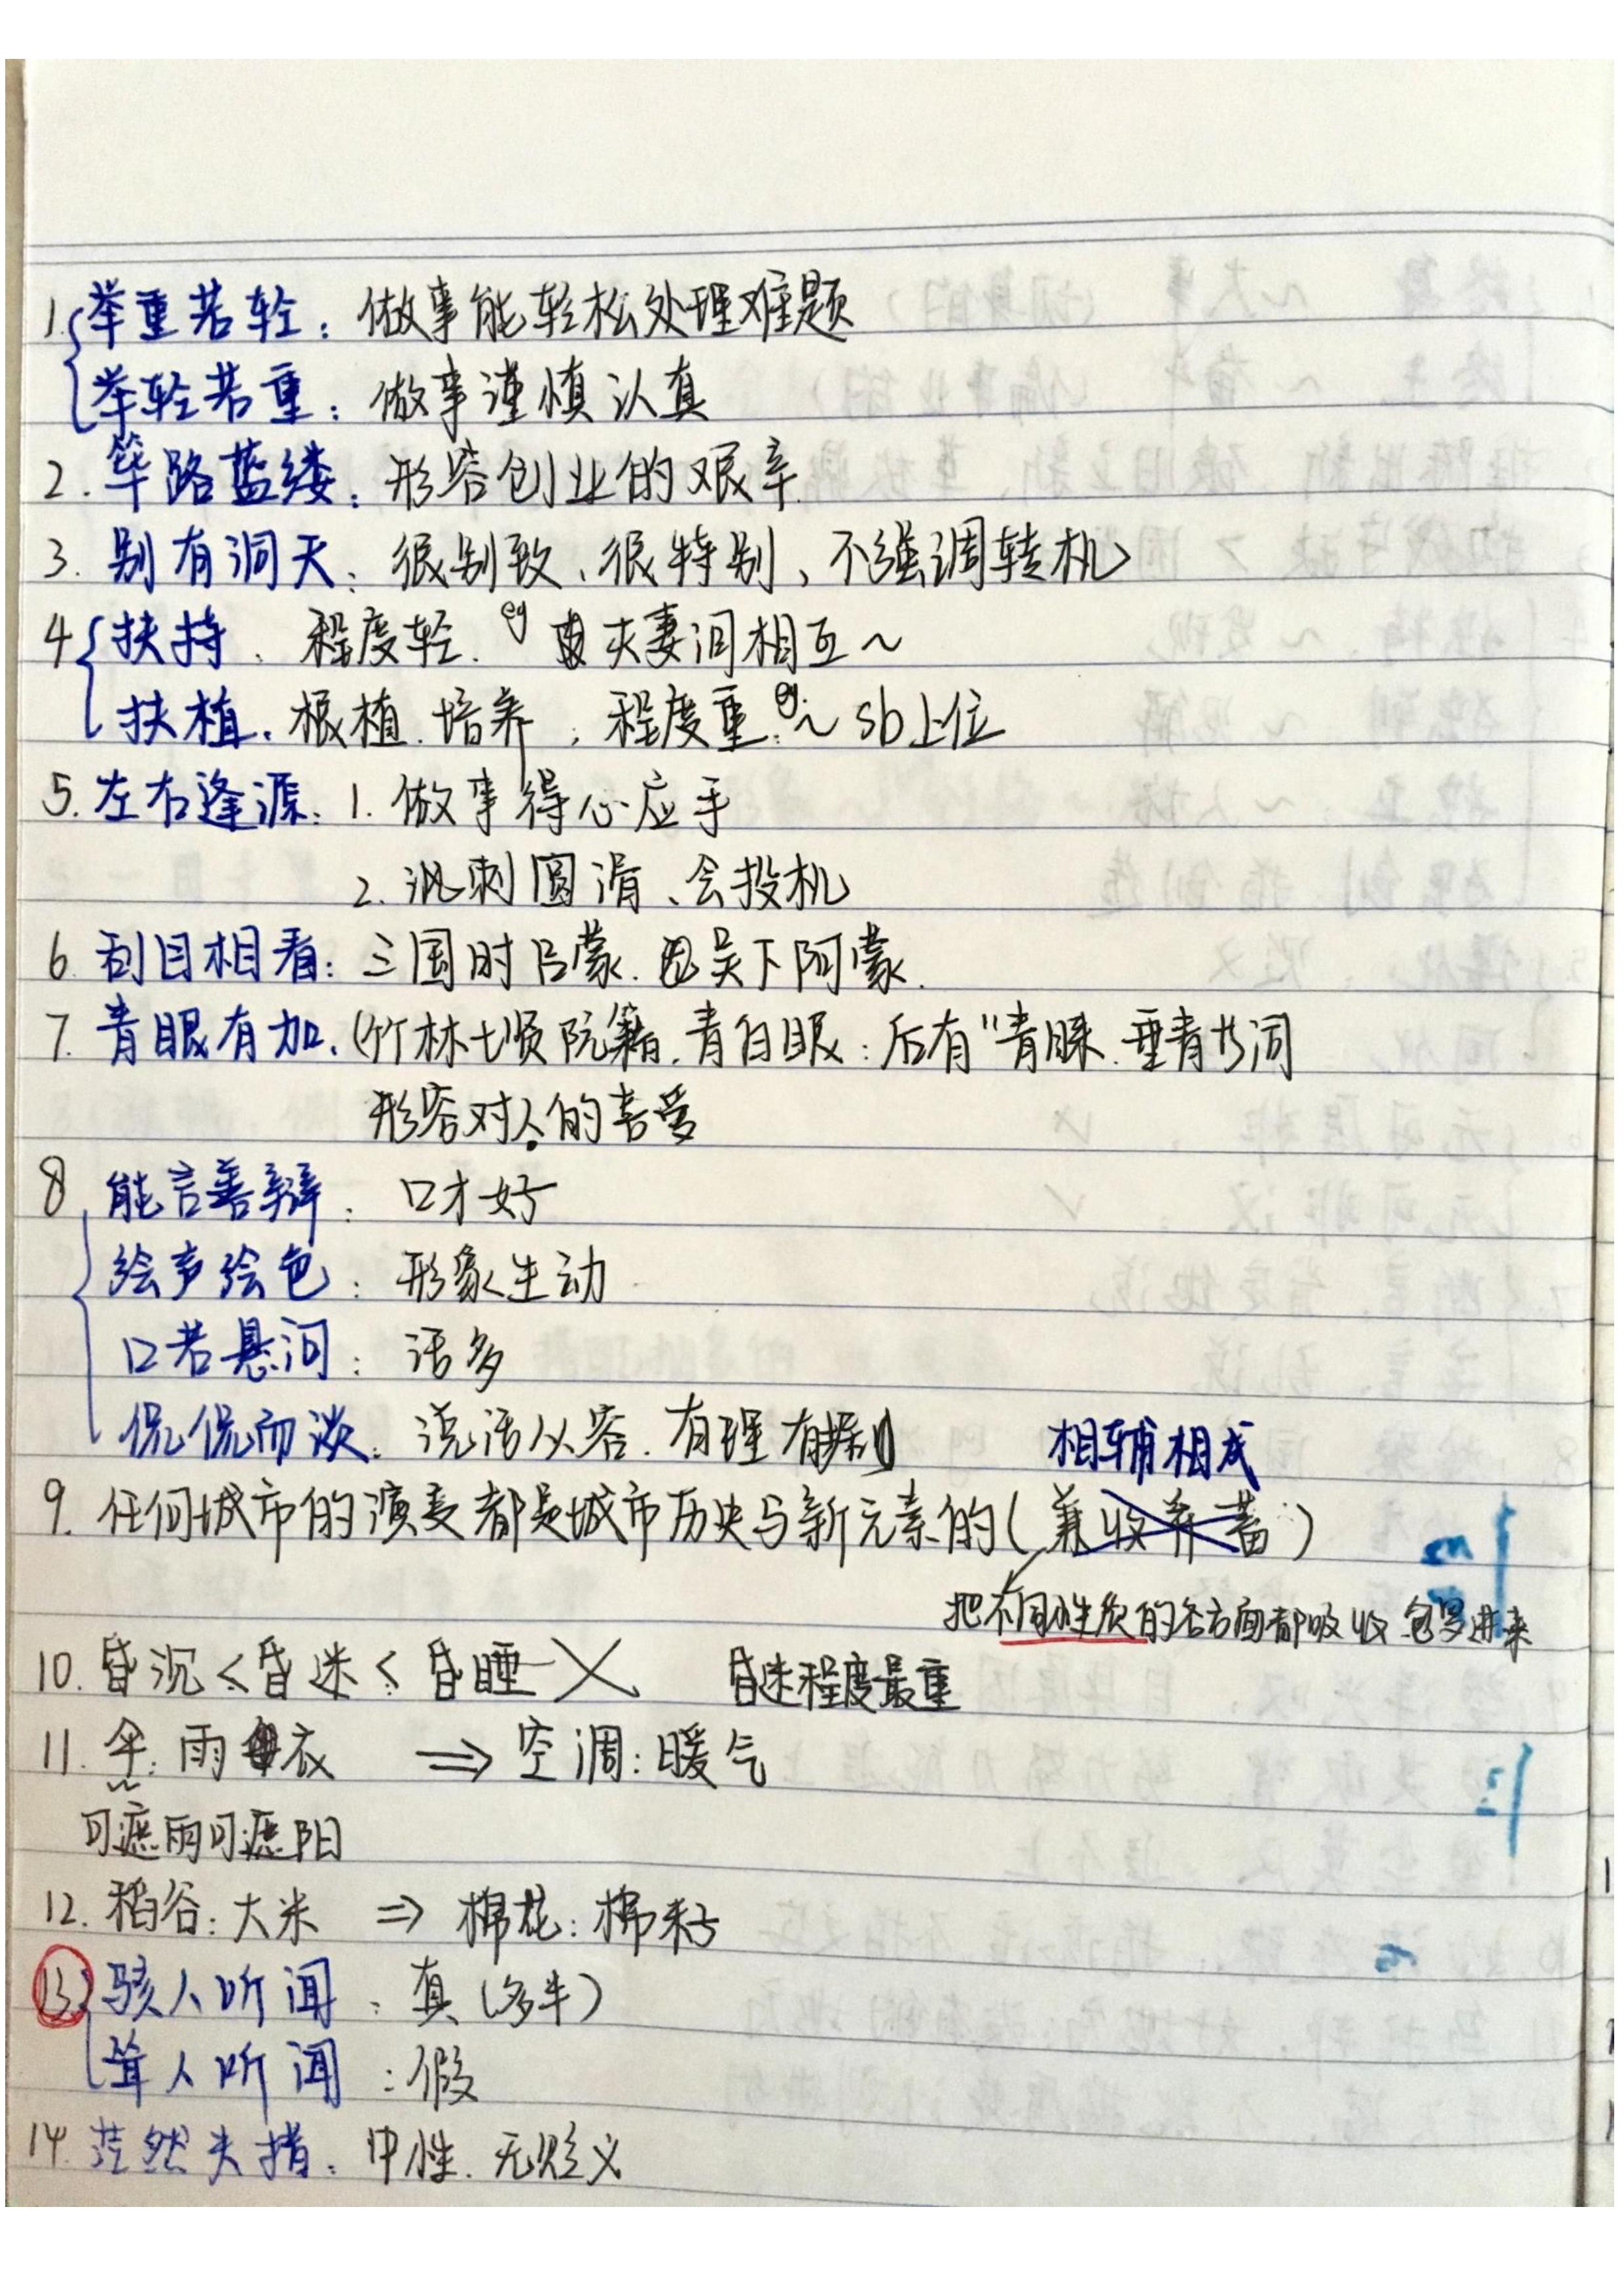 1. 举重若轻：做事能轻松处理难题
举轻若重：做事谨慎认真
2. 筚路蓝缕：形容创业的艰辛.
3. 别有洞天：很别致、很特别、不强调转机
4 扶持、程度轻. eg 夫妻间相互~
扶植. 根植.培养，程度重. eg:~sb上位
5. 左右逢源：1. 做事得心应手
2. 讽刺圆滑、会投机
6. 刮目相看：三国时吕蒙. 吴下阿蒙.
7. 青眼有加.(竹林七贤阮籍.青白眼：后有"青睐.垂青"词
形容对人的喜爱
8 能言善辩：口才好
绘声绘色：形象生动
口若悬河：话多
侃侃而谈：说话从容.有理有据 相辅相成
9. 任何城市的演变都是城市历史与新元素的(兼收并蓄)
把不同性质的各方面都吸收 包罗进来
10. 昏沉<昏迷<昏睡 × 昏迷程度最重
11. 伞：雨衣 ⇒ 空调：暖气
可遮雨可遮阳
12. 稻谷：大米 ⇒ 棉花：棉籽
13 骇人听闻：真(多半)
耸人听闻：假
14. 茫然失措：中性. 无贬义